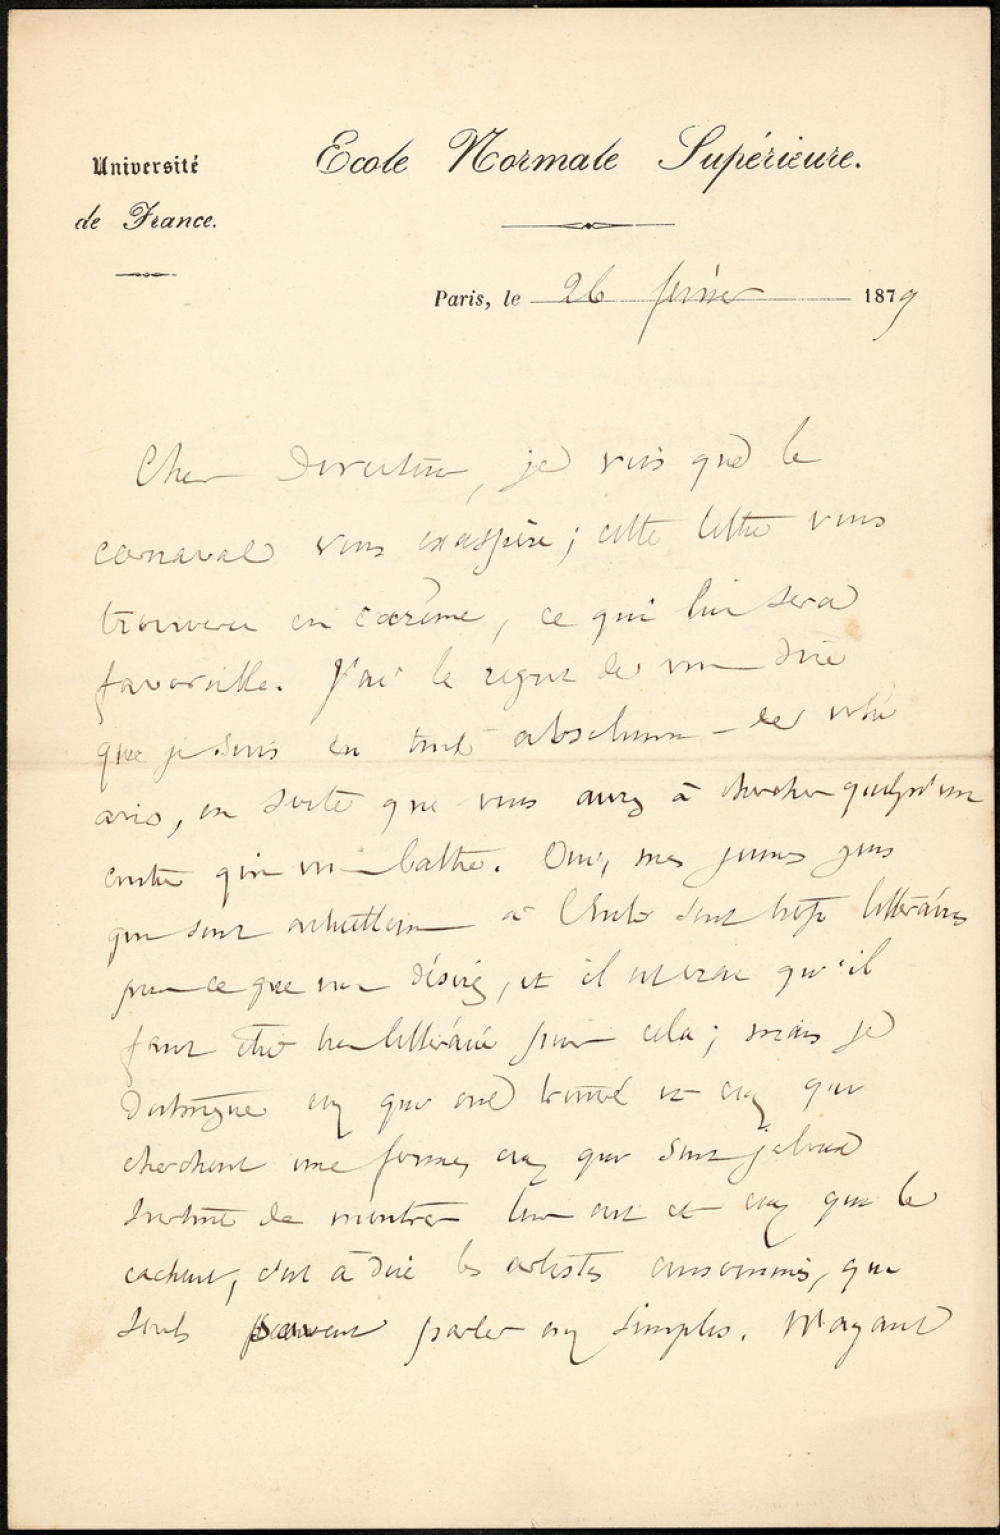 Université
de France.
Ecole Normale Supérieure.
Paris, le 26 février 1879
Cher Directeur, je vois que le
carnaval vous exaspère; cette lettre vous
trouvera en carême, ce qui lui sera
favorable. J'ai le regret de vous dire
que je suis en tout absolument de votre
avis, en sorte que vous aurez à chercher quelqu'un
contre qui vous battre. Oui, mes jeunes gens
qui sont actuellement à l'École sont trop littéraires
pour ce que vous désirez, et il est vrai qu'il
faut être très littéraire pour cela; mais je
distingue ceux qui ont trouvé et ceux qui
cherchent une forme, ceux qui sont
de montrer leur art et ceux qui le
cachent, c'est à dire les artistes consommés, qui
seuls peuvent parler aux simples. M'ayant